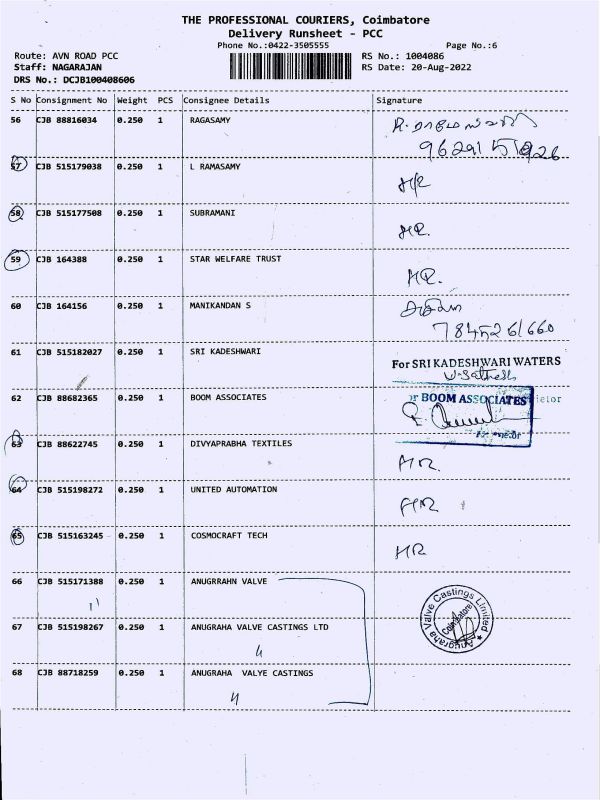 THE PROFESSIONAL COURIERS, Coimbatore
Delivery Runsheet - PCC
Phone No.:0422-3505555 Page No.:6
Route: AVN ROAD PCC RS No.: 1004086
Staff: NAGARAJAN RS Date: 20-Aug-2022
DRS No.: DCJB100408606
S No Consignment No Weight PCS Consignee Details Signature
56 CJB 88816034 0.250 1 RAGASAMY
57 CJB 515179038 0.250 1 L RAMASAMY
58 CJB 515177508 0.250 1 SUBRAMANI
59 CJB 164388 0.250 1 STAR WELFARE TRUST
60 CJB 164156 0.250 1 MANIKANDAN S
61 CJB 515182027 0.250 1 SRI KADESHWARI
For SRI KADESHWARI WATERS
62 CJB 88682365 0.250 1 BOOM ASSOCIATES
BOOM ASSOCIATES
63 CJB 88622745 0.250 1 DIVYAPRABHA TEXTILES
64 CJB 515198272 0.250 1 UNITED AUTOMATION
65 CJB 515163245 0.250 1 COSMOCRAFT TECH
66 CJB 515171388 0.250 1 ANUGRRAHN VALVE
Anugraha Valve Castings Limited
Coimbatore
67 CJB 515198267 0.250 1 ANUGRAHA VALVE CASTINGS LTD
68 CJB 88718259 0.250 1 ANUGRAHA VALYE CASTINGS